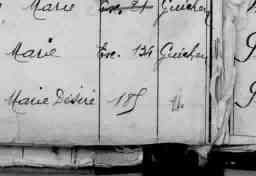 Marie Eve. 24 Guichen
Marie Eve. 134 Guichen
Marie Désiré 185 d.